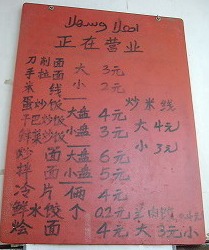 اهلا وسهلا
正在营业
刀削面 大 3元
手拉面
米线 小 2元
蛋炒饭 大盘 4元 炒米线
牛巴炒饭 大 4元
鲜菜炒饭 小盘 3元 小 3元
炒面 大盘 6元
拌面 小盘 5元
冷片 俩 4元
鲜水饺 个 0.2元 羊肉
烩面 大 3元 小